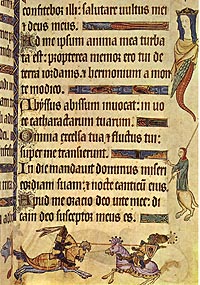 confitebor illi: salutare uultus mei
et deus meus.
Ad me ipsum anima mea turba
ta est: propterea memor ero tui de
terra iordanis, et hermonium a mon
te modico.
Abissus abissum inuocat: in uo
ce catharactarum tuarum.
Omnia excelsa tua et fluctus tui:
super me transierunt.
In die mandauit dominus miseri
cordiam suam: et nocte canticum eius.
Apud me oratio deo uite mee: di
cam deo susceptor meus es.